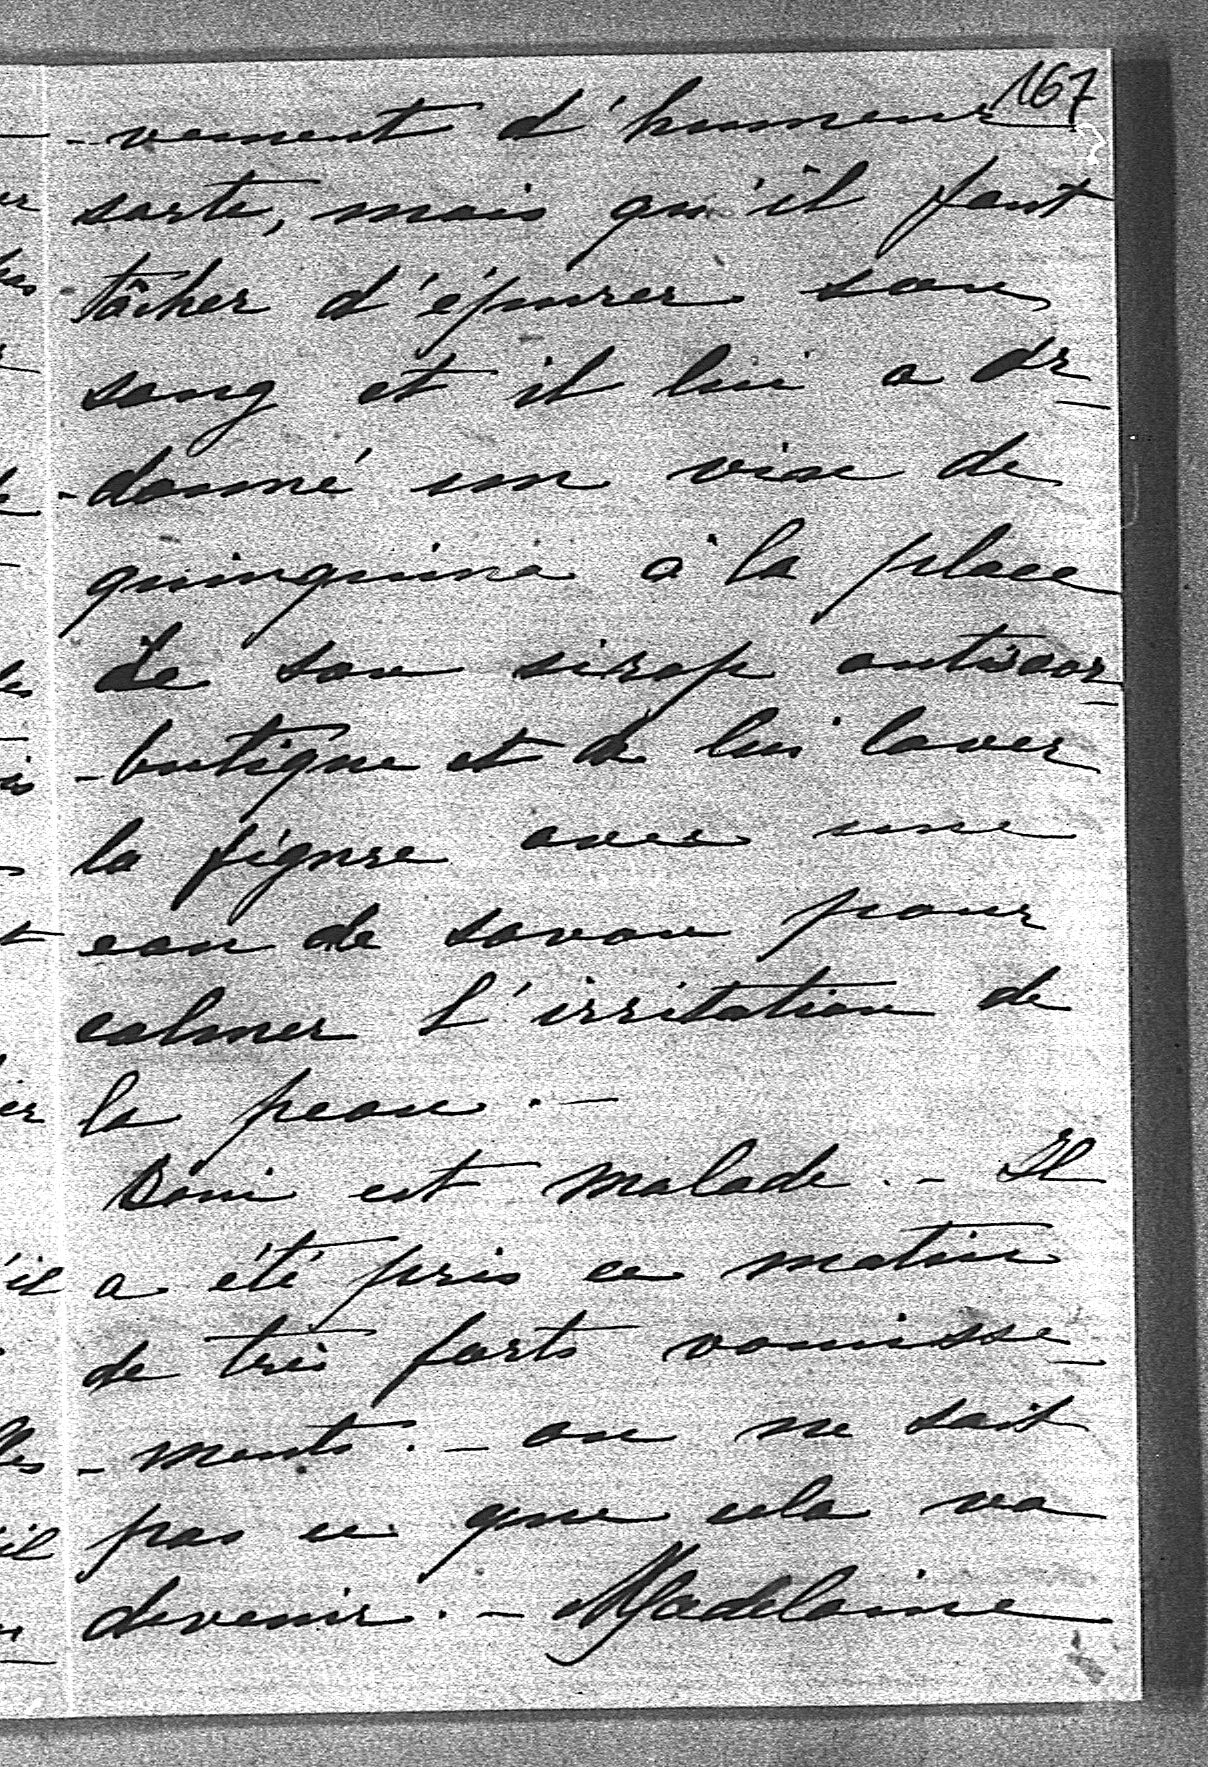 167
-vement d'humeur
sorte, mais qu'il faut
tâcher d'épurer son
sang et il lui a or
-donné un vin de
quinquina à la place
de son sirop antiscor
-butique et de lui laver
la figure avec une
eau de savon pour
calmer l'irritation de
la peau. -
est malade. - Il
a été pris ce matin
de très forts vomisse
-ments. - on ne sait
pas ce que cela va
devenir. - Madelaine